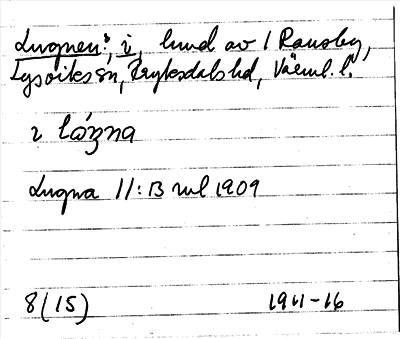 Lugnen: i, hmd av / Ransby,
Lysviks sn, Fryksdals hd, Värml. l.
i lózna
Lugna 11:13 rul 1909
8(15)
1911-16